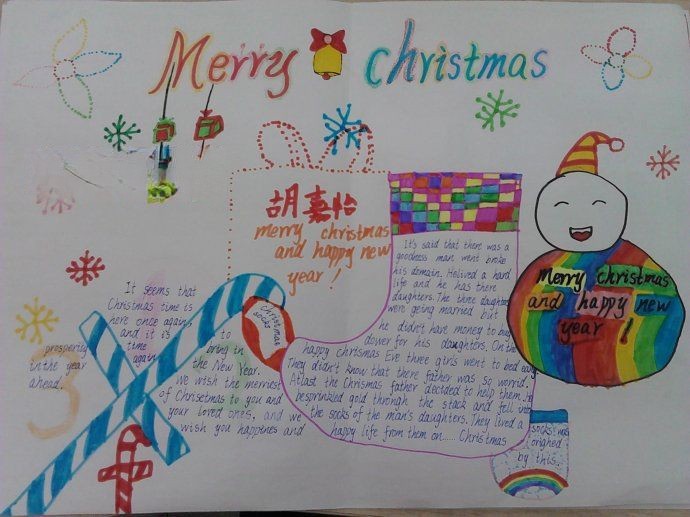 Merry christmas
胡嘉怡
merry christmas
and happy new
year!
It seems that
Christmas time is
here once again,
and it is
time
again
to
bring in
the New Year.
We wish the merriest
of Chrisetmas to you and
your loved ones, and we
wish you happines and
prosperity
in the year
ahead.
christmas
socks
It's said that there was a
goodness man went broke
his domain. Helived a hard
life and he has there
daughters. The three daughters
were geting married but
he didn't have money to buy
dower for his daughters. On the
happy chrismas Eve three girls went to bed eary
They didn't know that there father was so worrid.
At last the Chrismas father decided to help them. He
besprinkled gold through the stack and fell into
the socks of the man's daughters. They lived a
happy life from them on..... Christmas
socks was
orighed
by this.
Merry christmas
and happy new
year!